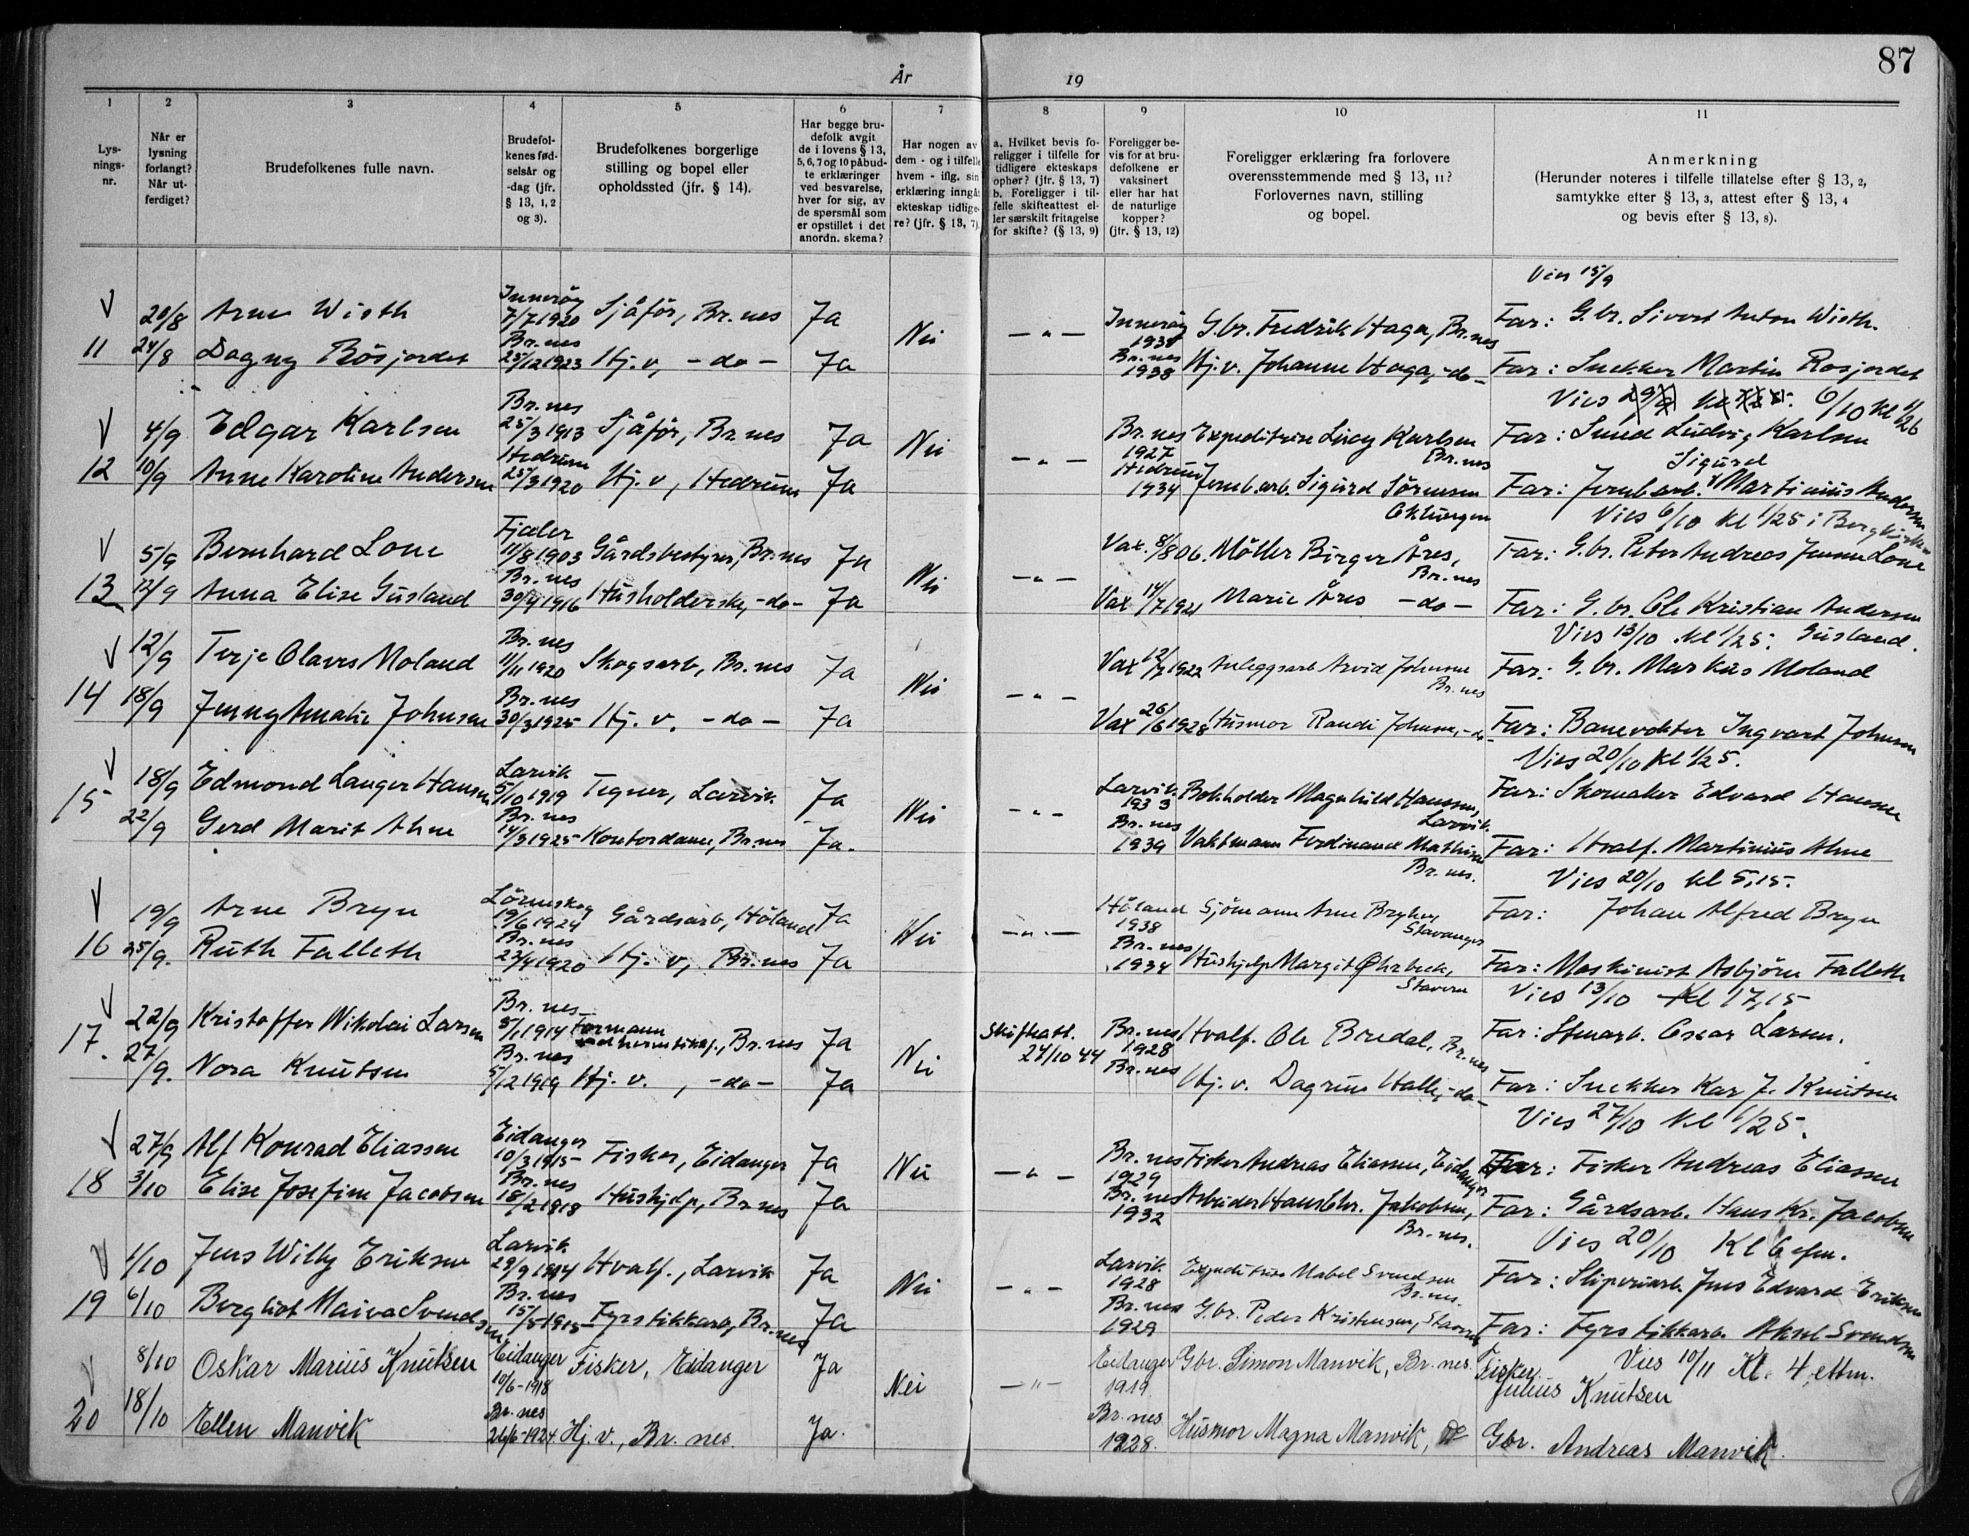 87
År 19
1 2 3 4 5 6 7 8 9 10 11
Lys-
nings-
nr.
Når er
lysning
forlangt?
Når ut-
ferdiget?
Brudefolkenes fulle navn.
Brudefol-
kenes fød-
selsår og
-dag (jfr.
§ 13, 1, 2
og 3).
Brudefolkenes borgerlige
stilling og bopel eller
opholdssted (jfr. § 14).
Har begge bru-
defolk avgit
de i lovens § 13,
5, 6, 7 og 10 påbud-
te erklæringer
ved besvarelse,
hver for sig, av
de spørsmål som
er opstillet i det
anordn. skema?
Har nogen av
dem - og i tilfelle
hvem - iflg. sin
erklæring inngått
ekteskap tidlige-
re? (jfr. § 13, 7).
a. Hvilket bevis fo-
religger i tilfelle for
tidligere ekteskaps
ophør? (jfr. § 13, 7)
b. Foreligger i til-
felle skifteattest el-
ler særskilt fritagelse
for skifte? (§ 13, 9)
Foreligger be-
vis for at bru-
defolkene er
vaksinert
eller har hat
de naturlige
kopper?
(jfr. § 13, 12)
Foreligger erklæring fra forlovere
overensstemmende med § 13, 11?
Forlovernes navn, stilling
og bopel.
Anmerkning
(Herunder noteres i tilfelle tillatelse efter § 13, 2,
samtykke efter § 13, 3, attest efter § 13, 4
og bevis efter § 13, 8).
Vies 15/9
V 20/8 Arne Wisth Innerøy 7/7 1920 Sjåfør, Br.nes Ja Nei — „ — Innerøy 1938 G.br. Fredrik Haga, Br.nes Far: G.br. Sivert Anton Wisth.
11 24/8 Dagny Rösjordet Br.nes 25/12 1923 Hj.v, - do - Ja Br.nes 1938 Hj.v. Johanne Haga, -do- Far: Snekker Martin Rosjordet
Vies 6/10 kl 1/26
V 4/9 Edgar Karlsen Br.nes 25/3 1913 Sjåfør, Br.nes Ja Nei — „ — Br.nes 1927 Expeditrise Lucy Karlsen Br.nes Far: Ludvig Karlsen
12 10/9 Anne Karoline Andersen Hedrum 25/3 1920 Hj.v, Hedrum Ja Hedrum 1934 Jernb.arb. Sigurd Sörensen Oklungen Far: Jernb.arb. Sigurd Martinius Andersen
Vies 6/10 Kl 1/25 i Berg kirke
V 5/9 Bernhard Lone Fjaler 11/8 1903 Gårdsbestyrer, Br.nes Ja Nei — „ — Vax. 8/8 06. Möller Birger Åres, Br.nes Far: G.br. Peter Andreas Jensen Lone
13 12/9 Anna Elise Gusland Br.nes 30/4 1916 Husholderske, -do- Ja Vax 14/7 1921 Marie Åres - do - Far: G.br. Ole Kristian Andersen Gusland.
Vies 13/10 kl 1/25.
V 12/9 Terje Olaves Moland Br.nes 11/11 1920 Skogsarb, Br.nes Ja Nei — „ — Vax 12/7 1922 Anleggsarb Arvid Johnsen Br.nes Far: G.br. Markus Moland
14 18/9 Jenny Amalie Johnsen Br.nes 30/3 1925 Hj.v. - do - Ja Vax 26/6 1928 Husmor Randi Johnsen, - do Far: Banevokter Ingvart Johnsen
Vies 20/10 kl 1/25.
V 18/9 Edmond Langer Hansen Larvik 5/10 1919 Tegner, Larvik Ja Nei - „ - Larvik 1933 Bokholder Magnhild Hansen, Larvik. Far: Skomaker Edvard Hansen
15 22/9 Gerd Marit Ahne Br.nes 14/3 1925 Kontordame, Br.nes Ja. Br.nes 1939 Vaktmann Ferdinand Mathisen Br.nes. Far: Hvalf. Martinius Ahne
Vies 20/10 kl 5,15.
V 19/9 Arne Bryn Lörenskog 19/6 1924 Gårdsarb, Höland Ja Nei — „ — Höland 1938 Sjömann Arne Stavanger Far: Johan Alfred Bryn
16 25/9. Ruth Falleth Br.nes 23/4 1920 Hj.v, Br.nes Ja Br.nes 1934 Hushjelp Margit Öhrbeck, Stavern Far: Maskinist Asbjörn Falleth
Vies 13/10 Kl 17,15
V 22/9 Kristoffer Nikolai Larsen Br.nes 5/1 1914 Formann Br.nes Ja Nei Skifteatt. 24/10 44 Br.nes 1928 Hvalf. Ole Bredal, Br.nes Far: Stenarb. Oscar Larsen.
17. 27/9. Nora Knutsen Br.nes 5/12 1919 Hj.v. , - do - Ja Br.nes Hj.v. Dagrun Halle, -do- Far: Snekker Kar J. Knutsen
Vies 27/10 kl 6/25.
V 27/9 Alf Konrad Eliassen Eidanger 10/3 1915 Fisker, Eidanger Ja Nei — „ — Br.nes 1929 Fisker Andreas Eliassen, Eidanger Far: Fisker Andreas Eliassen
18 3/10 Elise Josefine Jacobsen Br.nes 18/2 1918 Hushjelp, Br.nes Ja Br.nes 1932 Arbeider Hans Chr. Jakobsen, Br.nes. Far: Gårdsarb. Hans Kr. Jacobsen
Vies 20/10 Kl 6 efm.
V 4/10 Jens Willy Eriksen Larvik 29/9 1914 Hvalf., Larvik Ja Nei — „ — Larvik 1928 Expeditrise Mabel Svendsen Br.nes. Far: Sliperiarb Jens Edvard Eriksen
19 6/10 Bergliot Maiva Svendsen Br.nes 15/5 1915 Fyrstikkarb, Br.nes Ja Br.nes 1929 Gbr. Peder Kristensen, Stavern Far: Fyrstikkarb. Aksel Svendsen
Vies 10/11 Kl. 4 ettm.
V 8/10 Oskar Marius Knutsen Eidanger 10/6-1918 Fisker, Eidanger Ja Nei — „ — Eidanger 1919 Gbr. Simon Manvik, Br.nes. Fisker Julius Knutsen
20 18/10 Ellen Manvik Br.nes 26/6-1924 Hj.v., Br.nes. Ja. Br.nes 1928. Husmor Magna Manvik, do Gbr. Andreas Manvik.